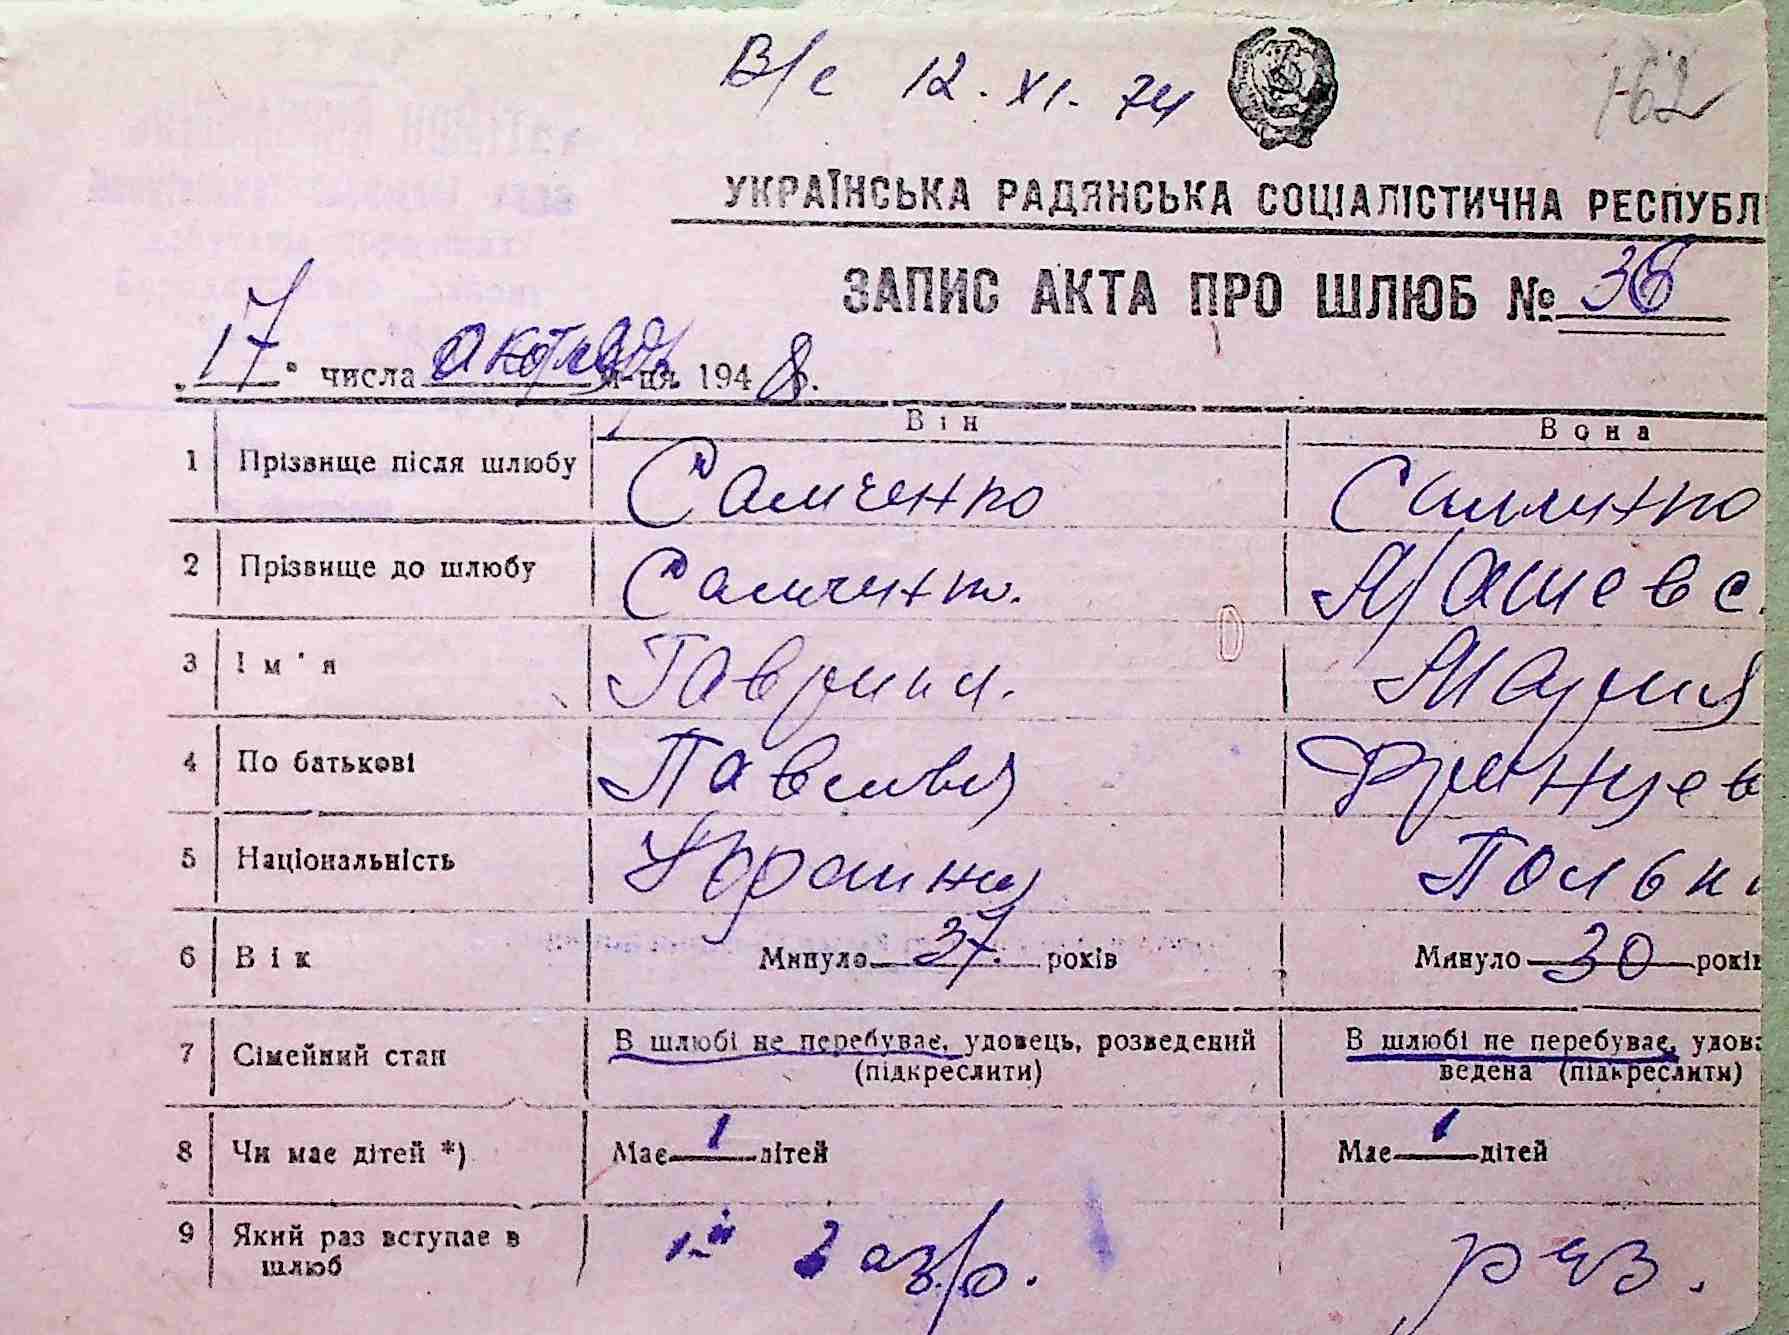 В/с 12.XI.74
162
УКРАЇНСЬКА РАДЯНСЬКА СОЦІАЛІСТИЧНА РЕСПУБЛ
ЗАПИС АКТА ПРО ШЛЮБ № 36
„17" числа октября м-ця 1948 р.
Він Вона
1 Прізвище після шлюбу Самченко Самченко
2 Прізвище до шлюбу Самченко.
3 Ім'я Гавриил. Мария
4 По батькові Павлович Францев
5 Національність Украинец Полька
6 Вік Минуло 37. років Минуло 30 років
7 Сімейний стан В шлюбі не перебуває, удовець, розведений В шлюбі не перебуває, удов
(підкреслити) ведена (підкреслити)
8 Чи має дітей *) Має 1 дітей Має 1 дітей
9 Який раз вступає в 1-й раз.
шлюб